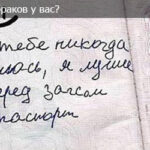 раков у вас?
тебе никогда
лось, я лучше
еред загсом
паспорт